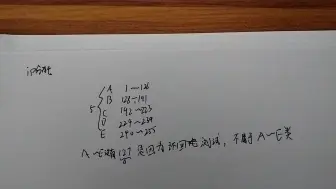 ip分社
A 1~126
B 128~191
5 C 192~223
D 224~239
E 240~255
A~E缺127是因为环回地测试，不属于A~E类